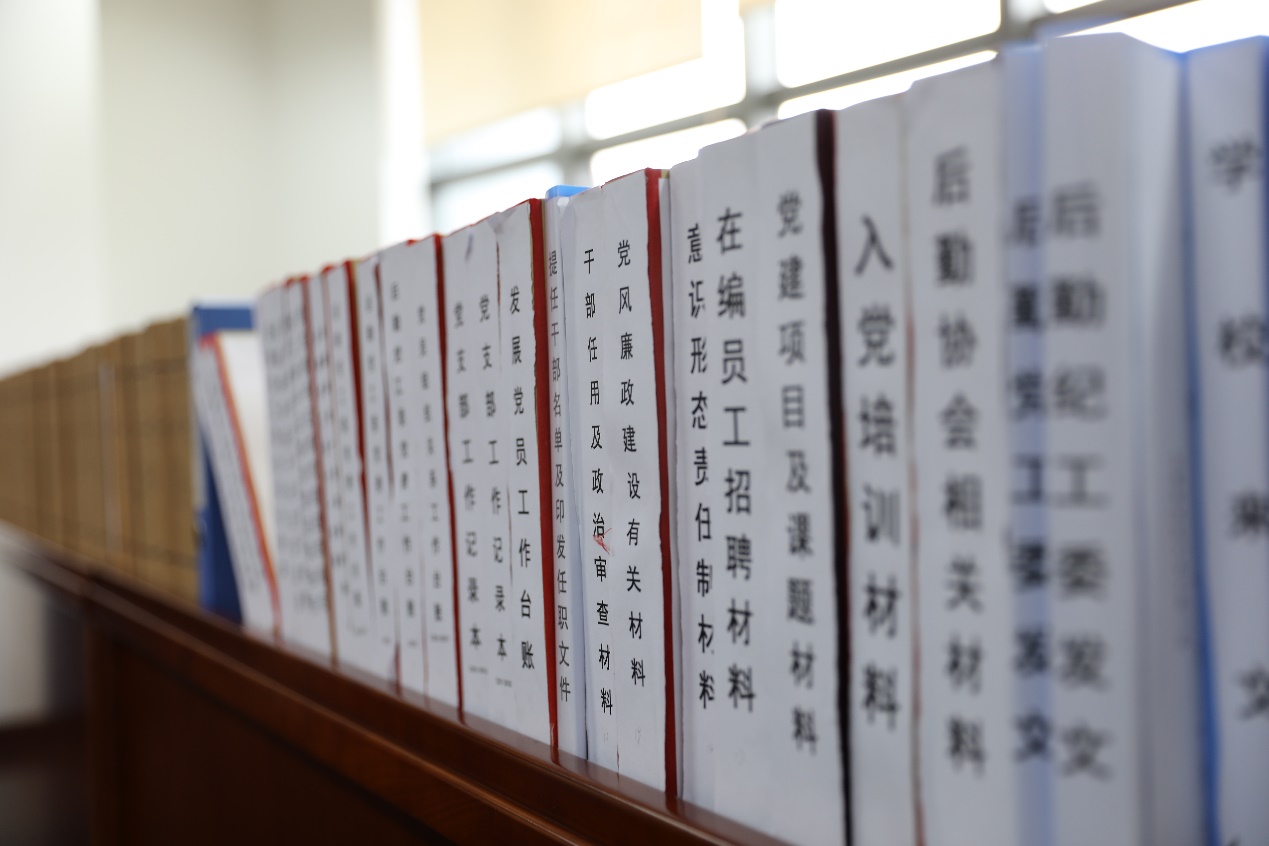 党支部工作记录本
党支部工作记录本
发展党员工作台账
提任干部名单及印发任职文件
干部任用及政治审查材料
党风廉政建设有关材料
意识形态责任制材料
在编员工招聘材料
党建项目及课题材料
入党培训材料
后勤协会相关材料
后勤党工委发文
后勤纪工委发文
学校来文